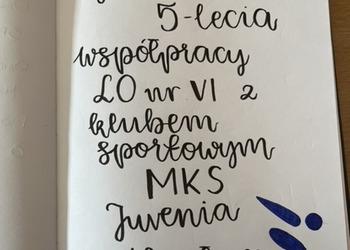 5-lecia
współpracy
LO nr VI z
klubem
sportowym
MKS
Juvenia